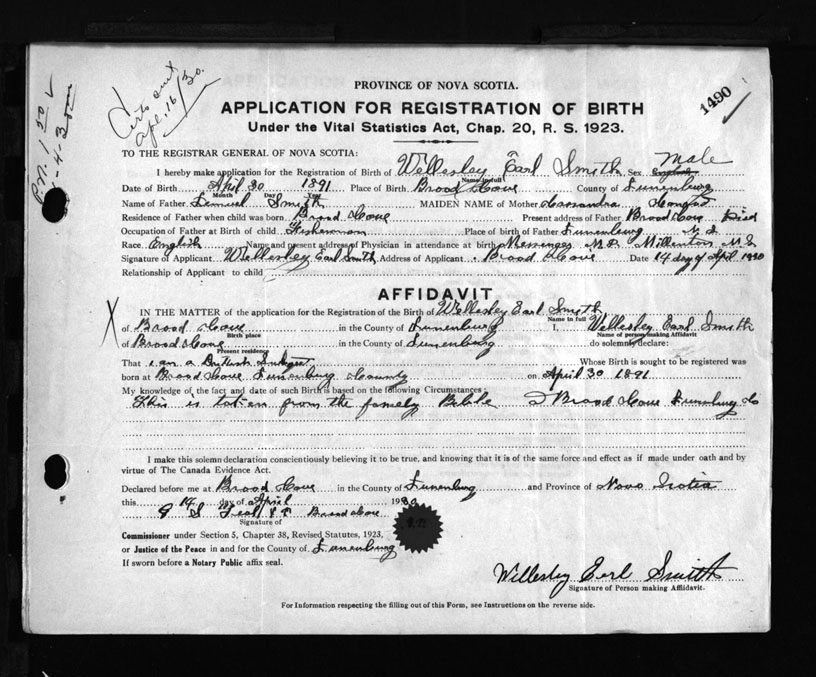 Certs sent
Apl. 16/30.
1490
PROVINCE OF NOVA SCOTIA.
APPLICATION FOR REGISTRATION OF BIRTH
Under the Vital Statistics Act, Chap. 20, R. S. 1923.
TO THE REGISTRAR GENERAL OF NOVA SCOTIA:
I hereby make application for the Registration of Birth of Wellesley Earl Smith Sex Male
Name in full
Date of Birth April 30 1891 Place of Birth Broad Cove County of Lunenburg
Month Day Year
Name of Father Lemuel Smith MAIDEN NAME of Mother Cassandra
Residence of Father when child was born Broad Cove Present address of Father Broad Cove Died
Occupation of Father at Birth of child Fisherman Place of birth of Father Lunenburg N. S.
Race English Name and present address of Physician in attendance at birth Messinger M.D.
Signature of Applicant Wellesley Earl Smith Address of Applicant Broad Cove Date 14 day of April 1930
Relationship of Applicant to child
AFFIDAVIT
IN THE MATTER of the application for the Registration of the Birth of Wellesley Earl Smith
Name in full
of Broad Cove in the County of Lunenburg I, Wellesley Earl Smith
Birth place Name of person making Affidavit
of Broad Cove in the County of Lunenburg do solemnly declare:
Present residence
That i am a British Subject Whose Birth is sought to be registered was
born at Broad Cove Lunenburg County on April 30 1891
My knowledge of the fact and date of such Birth is based on the following Circumstances:
This is taken from the famely Bible Broad Cove Lunenburg Co
I make this solemn declaration conscientiously believing it to be true, and knowing that it is of the same force and effect as if made under oath and by
virtue of The Canada Evidence Act.
Declared before me at Broad Cove in the County of Lunenburg and Province of Nova Scotia
this 14 day of April 1930
Teal J P Broad Cove
Signature of
Commissioner under Section 5, Chapter 38, Revised Statutes, 1923,
or Justice of the Peace in and for the County of Lunenburg
If sworn before a Notary Public affix seal.
Wellesley Earl Smith
Signature of Person making Affidavit.
For Information respecting the filling out of this Form, see Instructions on the reverse side.